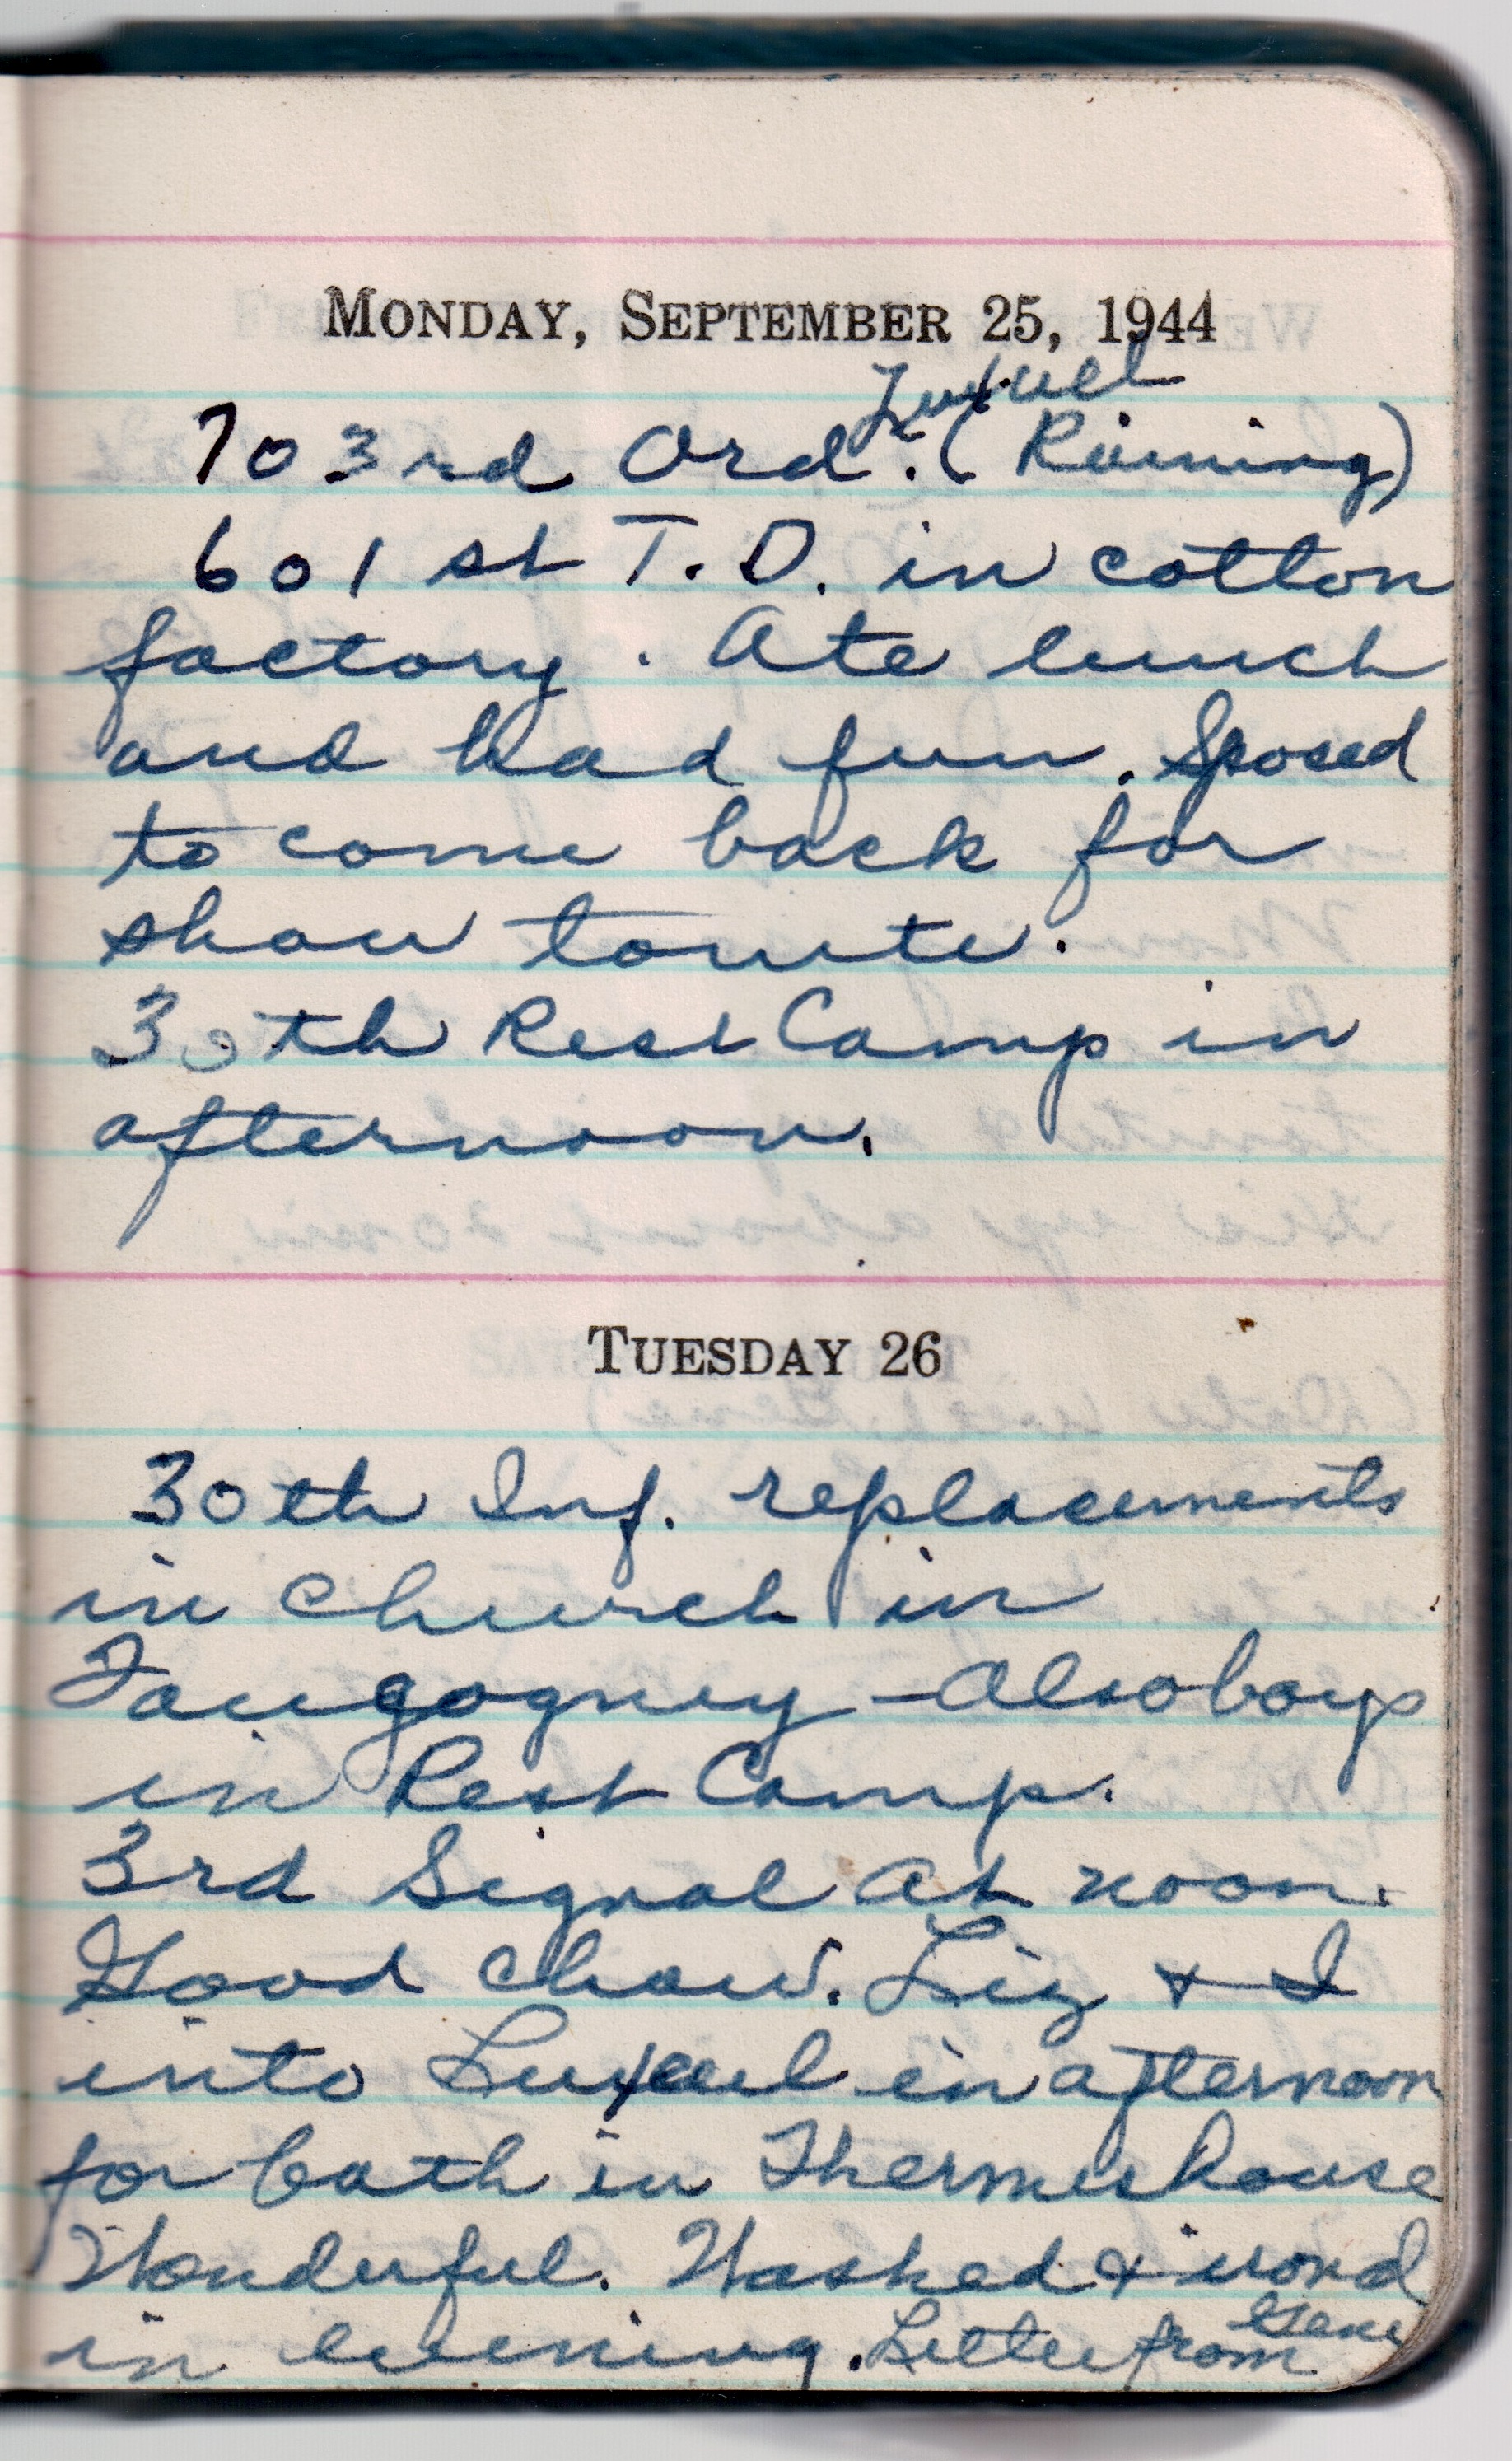 MONDAY, SEPTEMBER 25, 1944
Luxuel
703rd Ord. (Raining)
601st T.D. in cotton
factory. Ate lunch
and had fun. Sposed
to come back for
show tonite.
30th Rest Camp in
afternoon.
TUESDAY 26
30th Inf. replacements
in church in
Faugogney - Also boys
in Rest Camp.
3rd Signal at noon.
Good chow. Liz & I
into Luxeuil in afternoon
for bath in Thermeshouse
Wonderful. Washed & irond
in evening. Letter from Gene